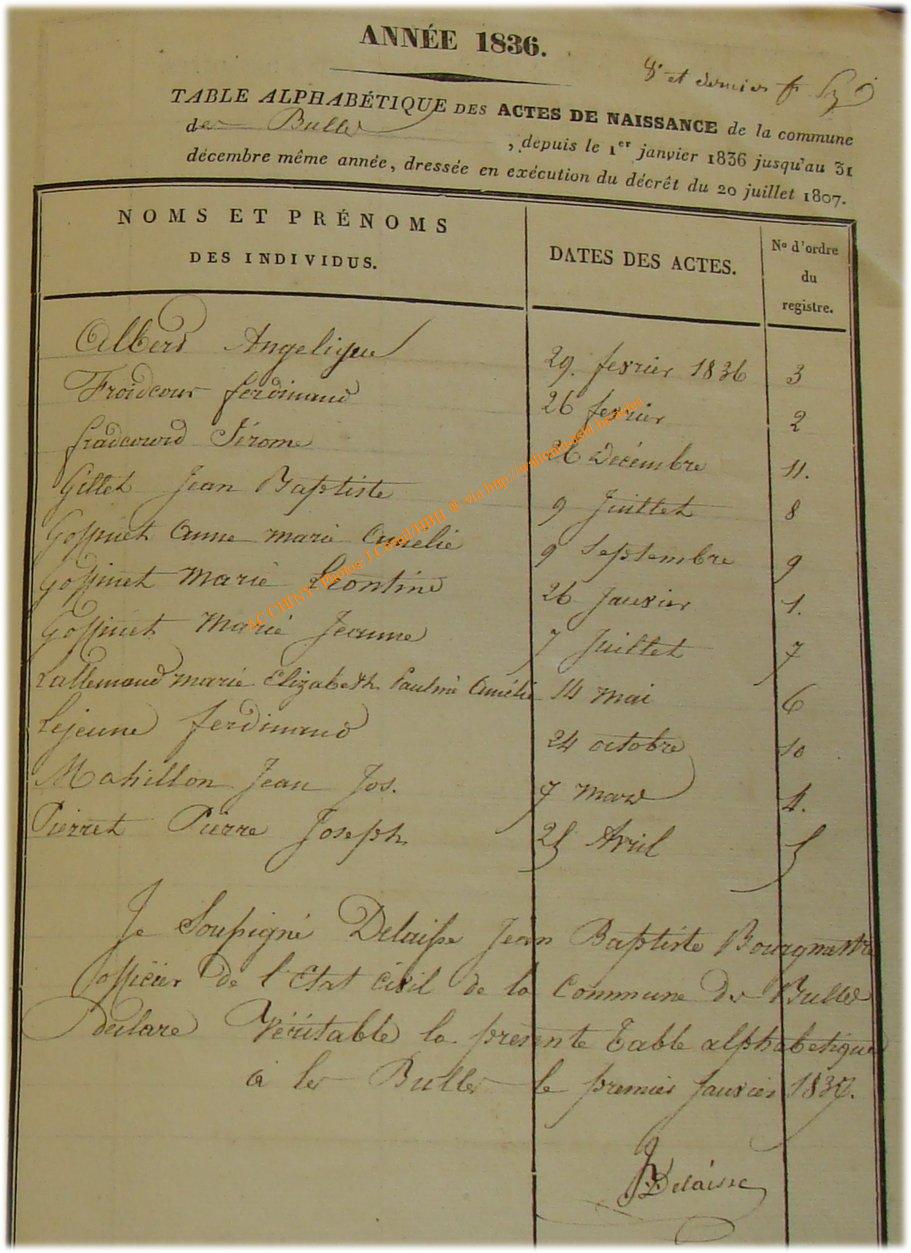 ANNÉE 1836.
8e et dernier f
TABLE ALPHABÉTIQUE DES ACTES DE NAISSANCE de la commune
de Bulle , depuis le 1er janvier 1836 jusqu'au 31
décembre même année, dressée en exécution du décrêt du 20 juillet 1807.
NOMS ET PRÉNOMS DES INDIVIDUS. DATES DES ACTES. No d'ordre du registre.
Albert Angelique 29. fevrier 1836 3
Froidcour ferdinand 26 fevrier 2
fradcourd Jérome 26 Décembre 11.
Gillet Jean Baptiste 9 Juillet 8
Gossinet anne marie Amelie 9 Septembre 9
Gossinet Marie Léontine 26 Janvier 1.
Gossinet Marie Jeanne 7 Juillet 7
Lallemand marie Elizabeth Pauline Amélie 14 mai 6
Lejeune ferdinand 24 octobre 10
Mahillon Jean Jos. 7 mars 4.
Pierret Pierre Joseph 25 Avril 5
Je Soussigné Delaisse Jean Baptiste Bourgmestre
officier de l'Etat civil de la Commune de Bulle
Déclare Véritable la presente Table alphabetique
à les Bulles le premier Janvier 1837.
Delaisse
ACCHINY Photos J Camal HDH ® via